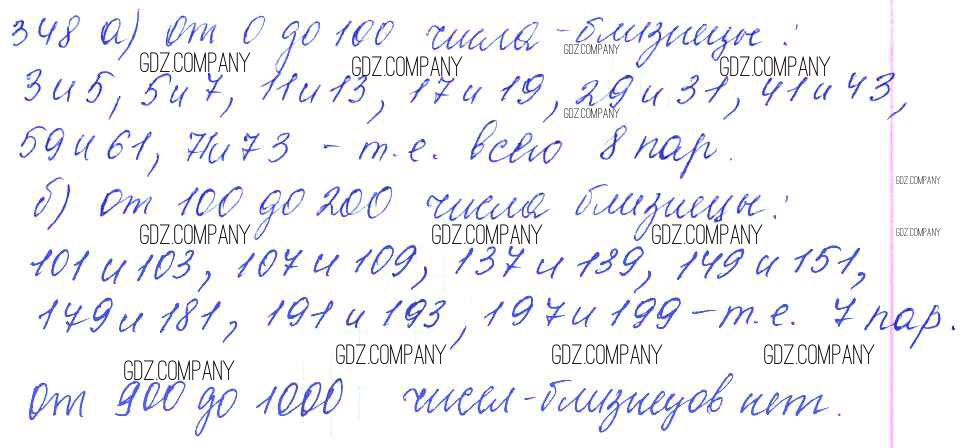 348 а) от 0 до 100 числа-близнецы:
GDZ.COMPANY GDZ.COMPANY GDZ.COMPANY GDZ.COMPANY
3 и 5, 5 и 7, 11 и 13, 17 и 19, 29 и 31, 41 и 43,
GDZ.COMPANY
59 и 61, 71 и 73 - т.е. всего 8 пар.
GDZ.COMPANY
б) от 100 до 200 числа близнецы:
GDZ.COMPANY GDZ.COMPANY GDZ.COMPANY GDZ.COMPANY
101 и 103, 107 и 109, 137 и 139, 149 и 151,
179 и 181, 191 и 193, 197 и 199 - т.е. 7 пар.
GDZ.COMPANY GDZ.COMPANY GDZ.COMPANY GDZ.COMPANY
от 900 до 1000 чисел-близнецов нет.